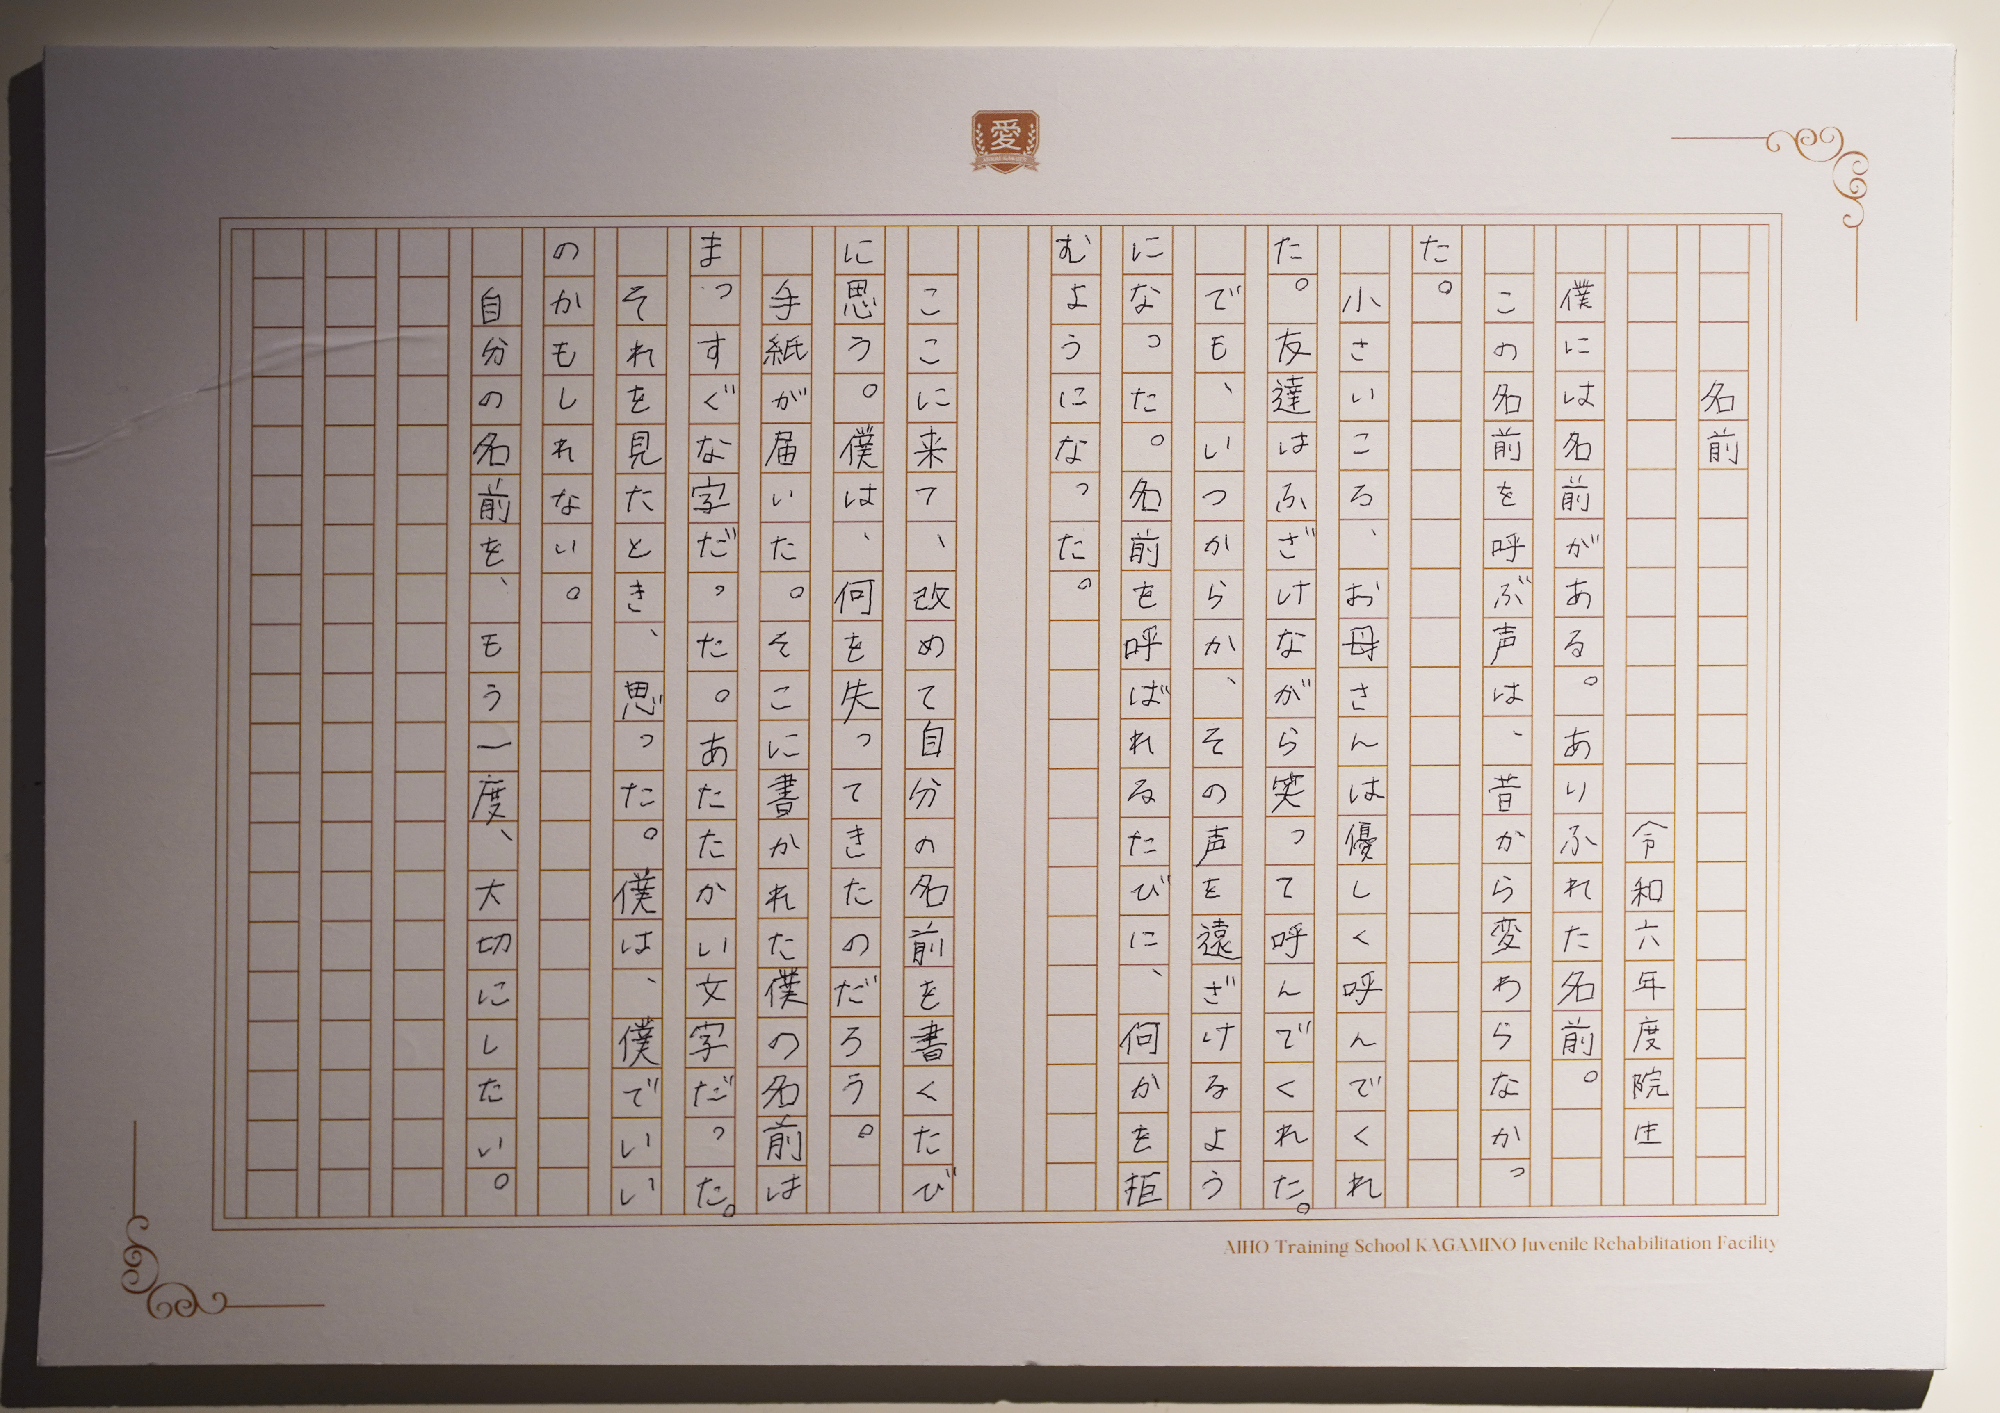 愛
名前
令和六年度院生
僕には名前がある。ありふれた名前。
この名前を呼ぶ声は、昔から変わらなかっ
た。
小さいころ、お母さんは優しく呼んでくれ
た。友達はふざけながら笑って呼んでくれた。
でも、いつからか、その声を遠ざけるよう
になった。名前を呼ばれるたびに、何かを拒
むようになった。
ここに来て、改めて自分の名前を書くたび
に思う。僕は、何を失ってきたのだろう。
手紙が届いた。そこに書かれた僕の名前は
まっすぐな字だった。あたたかい文字だった。
それを見たとき、思った。僕は、僕でいい
のかもしれない。
自分の名前を、もう一度、大切にしたい。
AIHO Training School KAGAMINO Juvenile Rehabilitation Facility